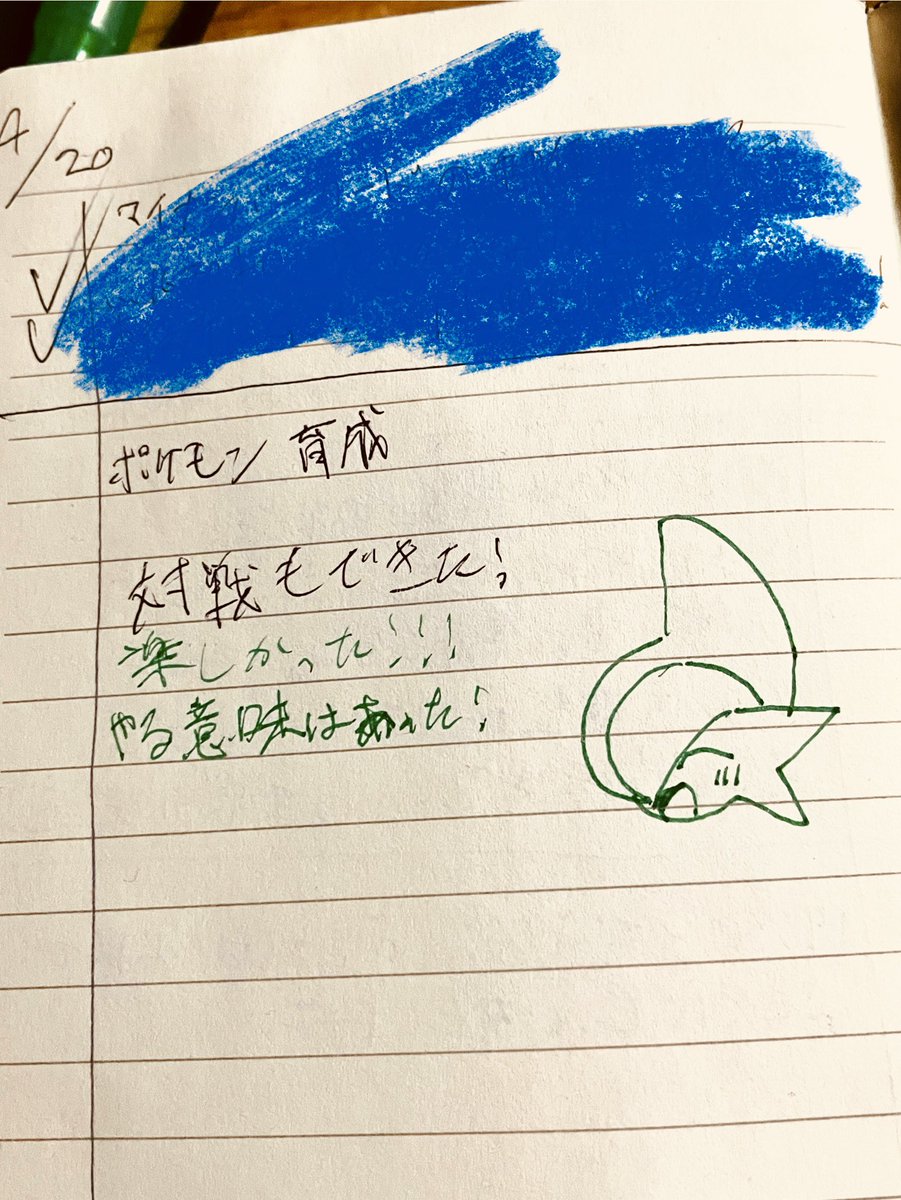 4/20
マイ
ポケモン 育成
対戦もできた!
楽しかった!!!
やる意味はあった!